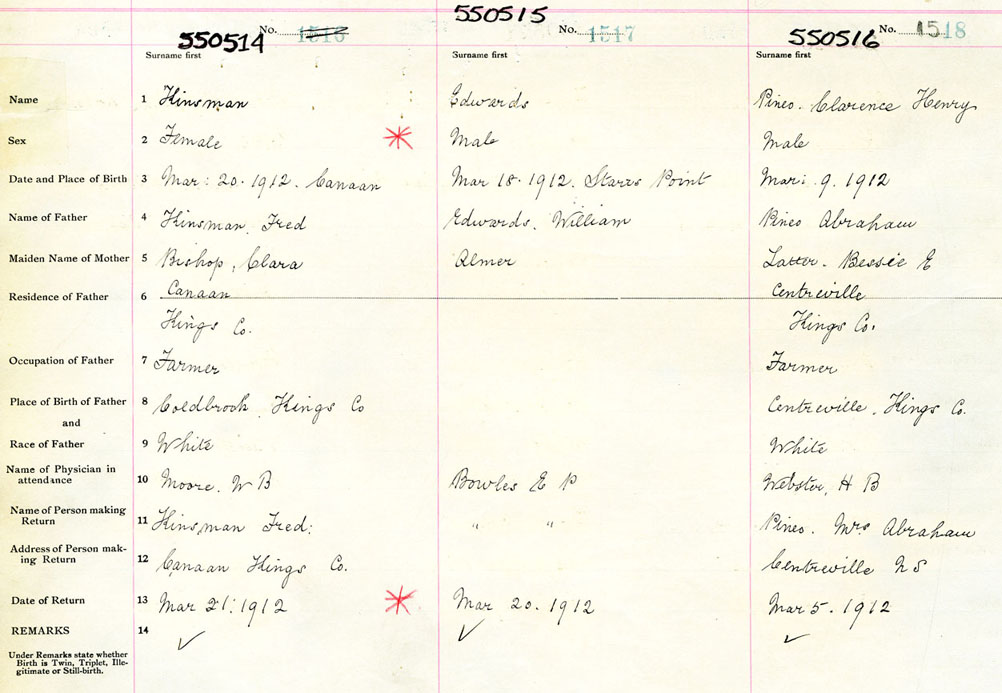 550514 No. 1516 550515 No. 1517 550516 No. 1518
Surname first Surname first Surname first
Name 1 Kinsman Edwards Pineo. Clarence Henry
Sex 2 Female Male Male
Date and Place of Birth 3 Mar: 20. 1912. Canaan Mar 18. 1912. Starrs Point Mar: 9. 1912
Name of Father 4 Kinsman, Fred Edwards, William Pineo Abraham
Maiden Name of Mother 5 Bishop, Clara Bessie E
Residence of Father 6 Canaan Centreville
Kings Co. Kings Co.
Occupation of Father 7 Farmer Farmer
Place of Birth of Father 8 Coldbrook, Kings Co Centreville, Kings Co.
and
Race of Father 9 White White
Name of Physician in
attendance 10 Moore, W B Bowles E P Webster, H B
Name of Person making
Return 11 Kinsman Fred: " " Pineo. Mrs Abraham
Address of Person mak-
ing Return 12 Canaan Kings Co. Centreville N S
Date of Return 13 Mar 21: 1912 Mar 20. 1912 Mar 5. 1912
REMARKS 14 ✓ ✓ ✓
Under Remarks state whether
Birth is Twin, Triplet, Ille-
gitimate or Still-birth.